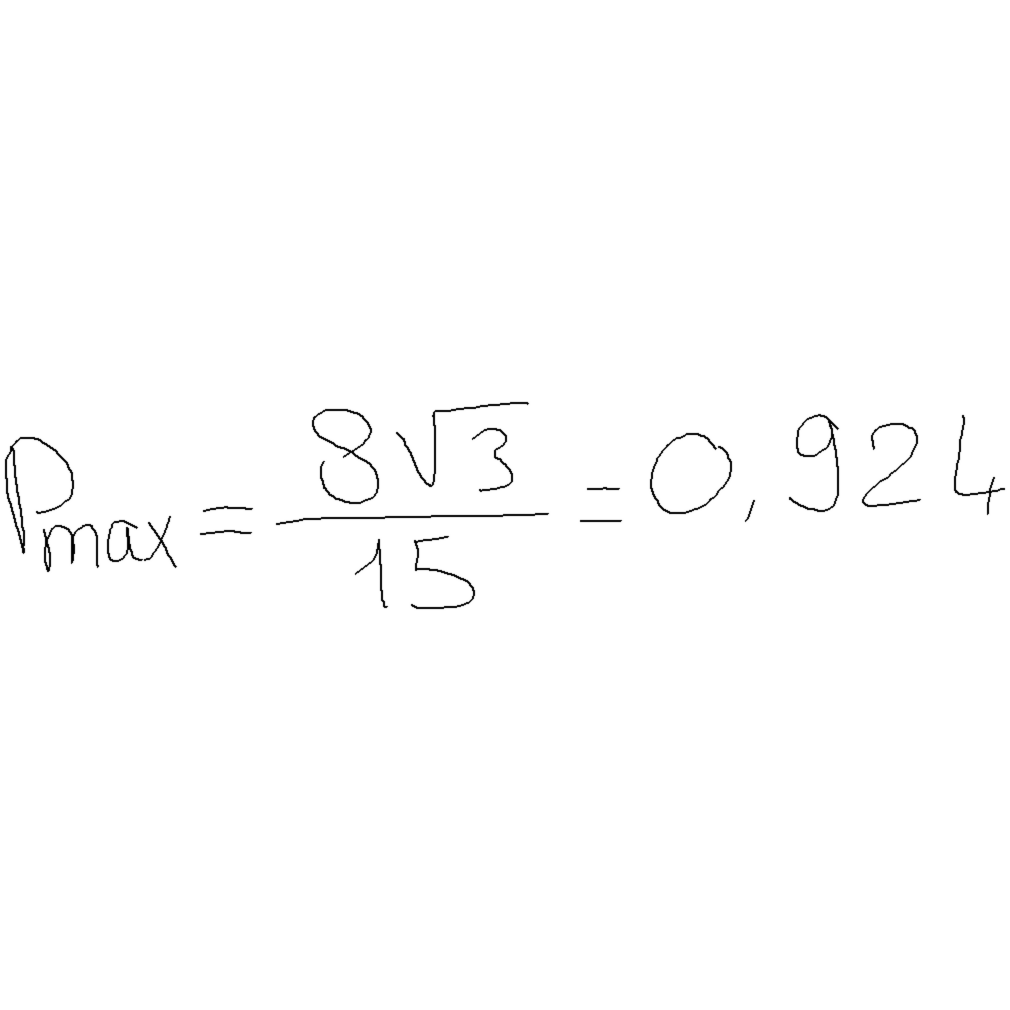 Pmax = 8√3/15 = 0,924